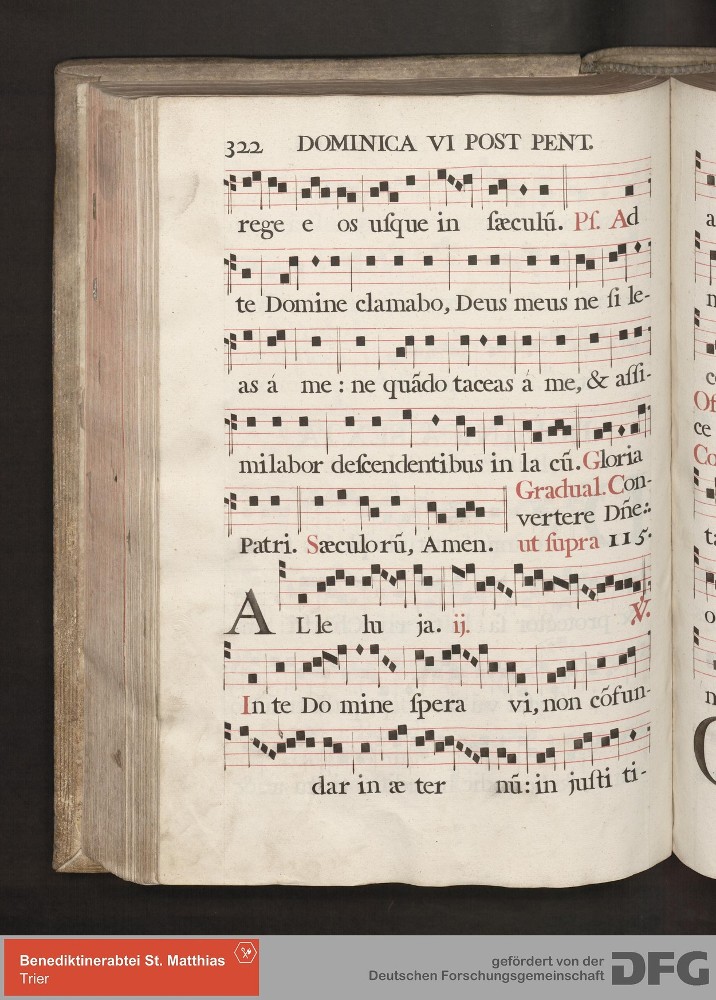 322 DOMINICA VI POST PENT.
rege e os uſque in ſæculū. Pſ. Ad
te Domine clamabo, Deus meus ne ſi le-
as á me : ne quãdo taceas á me, & aſſi-
milabor deſcendentibus in la cũ. Gloria
Gradual. Con-
vertere Dñe:.
Patri. Sæculorũ, Amen. ut ſupra 115.
ALle lu ja. ij. ℣.
In te Do mine ſpera vi, non cõfun-
dar in æ ter nũ: in juſti ti-
a
n
c
Of
ce
Co
t
o
n
Benediktinerabtei St. Matthias
Trier
gefördert von der
Deutschen Forschungsgemeinschaft
DFG